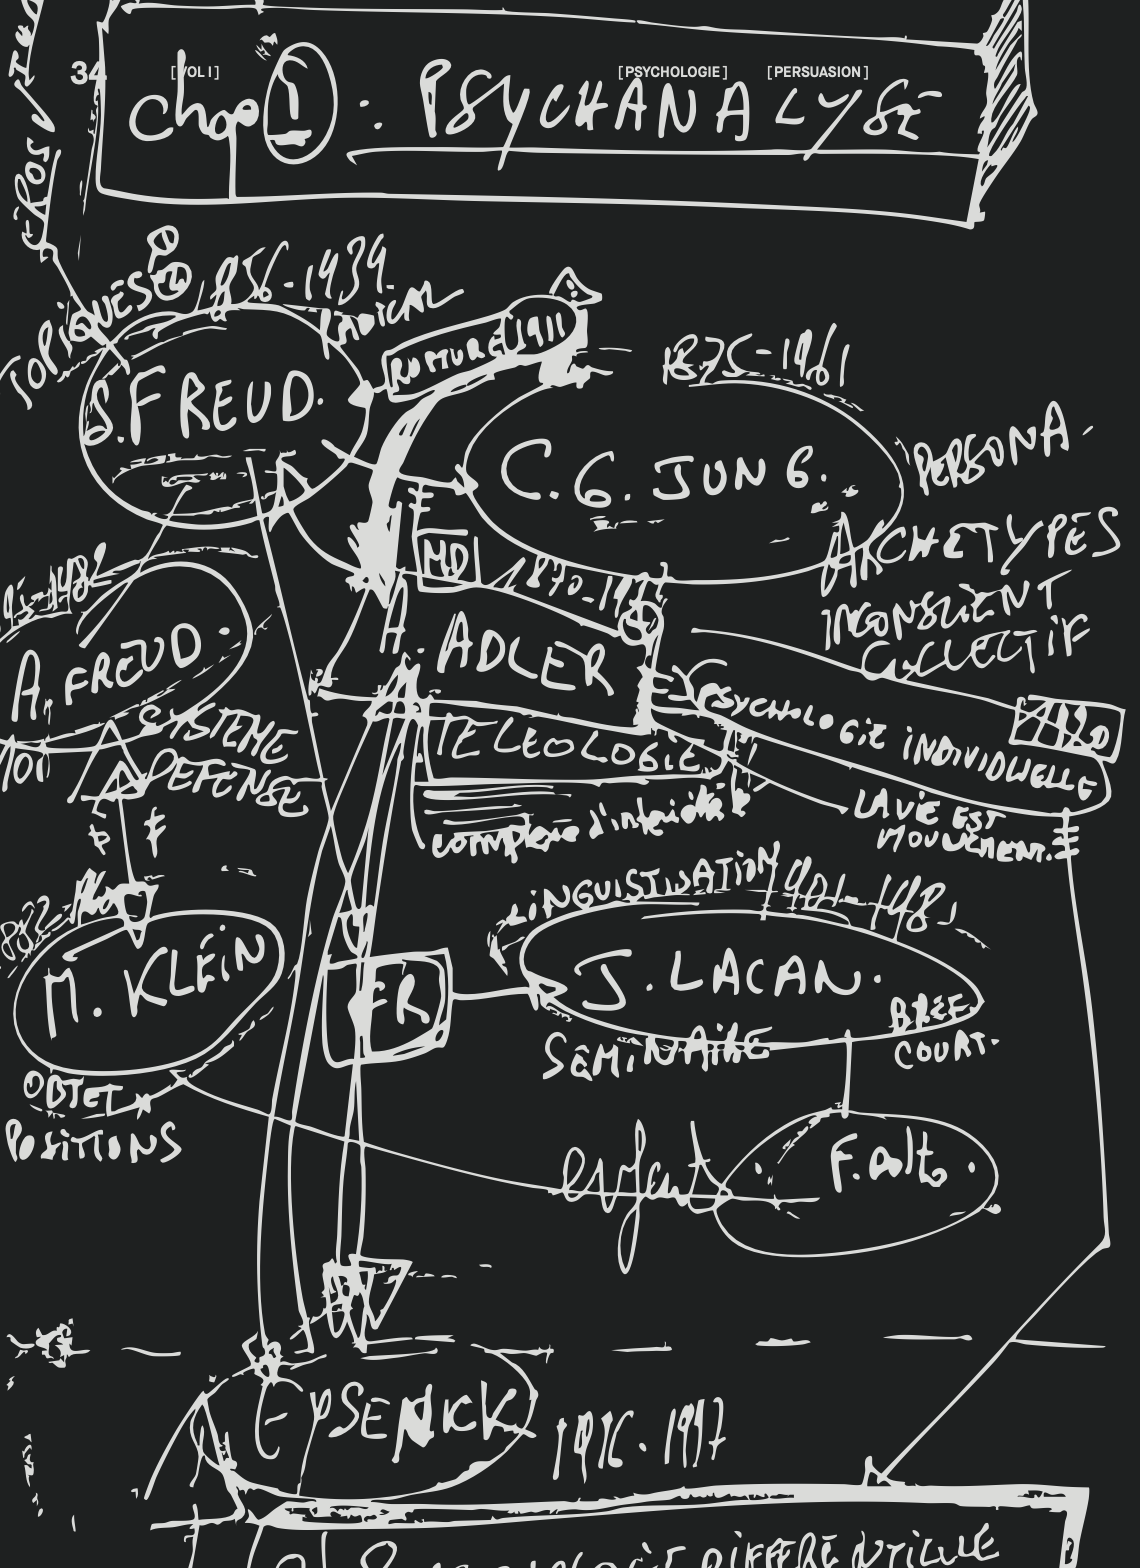 34 [VOL I] [PSYCHOLOGIE] [PERSUASION]
chap 1 : PSYCHANALYSE
EROS /
TOPIQUES
1856-1939
RADICAL
RUPTURE 1911
S. FREUD.
1875-1961
C. G. JUNG.
PERSONA
ARCHETYPES
INCONSCIENT
COLLECTIF
MD
A. ADLER
A. FREUD.
SYSTEME
DEFENSE
MOI
TELEOLOGIE
PSYCHOLOGIE INDIVIDUELLE
LA VIE EST
MOUVEMENT.
complexe d'inferiorité
LINGUISTISATION 1901-1981
M. KLEIN
FR
J. LACAN.
SEMINAIRE
BREF
COURT.
OBJET
POSITIONS
enfants
F. Dolto
EYSENCK
1916-1997
DIFFERENTIELLE